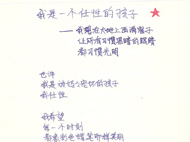 我是一个任性的孩子
——我想在大地上画满窗子
让所有习惯黑暗的眼睛
都习惯光明
也许
我是被妈妈宠坏的孩子
我任性
我希望
每一个时刻
都象彩色蜡笔那样美丽